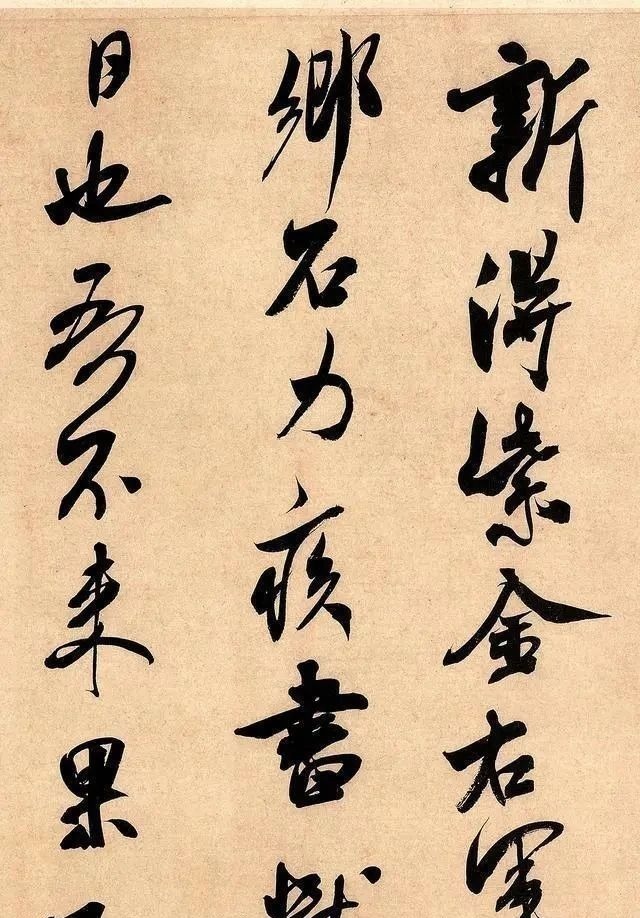 新得紫金右軍
鄉石力疾書
日也吾不來果